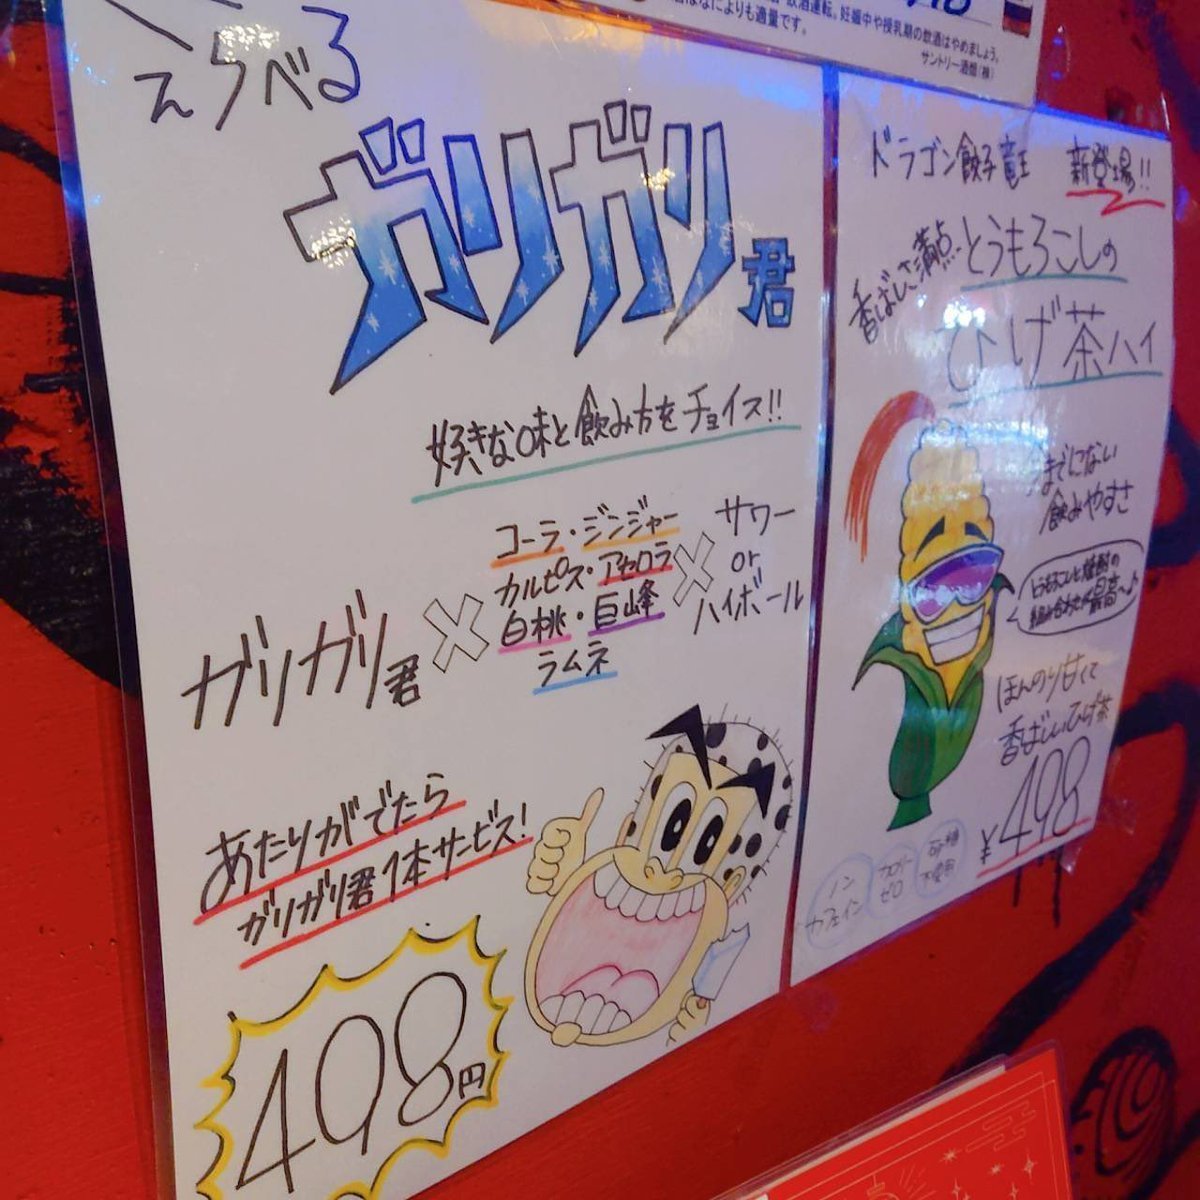 えらべる
ガリガリ君
好きな味と飲み方をチョイス!!
ガリガリ君
×
コーラ・ジンジャー
カルピス・アセロラ
白桃・巨峰
ラムネ
×
サワー
or
ハイボール
あたりがでたら
ガリガリ君1本サービス!
498円
飲酒運転。妊娠中や授乳期の飲酒はやめましょう。
はなによりも適量です。
サントリー酒類(株)
ドラゴン餃子竜王 新登場!!
香ばしさ満点
とうもろこしの
ひげ茶ハイ
今までにない
飲みやすさ
とうもろこしと焼酎の
組み合わせが最高〜♪
ほんのり甘くて
香ばしいひげ茶
¥498
ノン
カフェイン
カロリー
ゼロ
砂糖
不使用